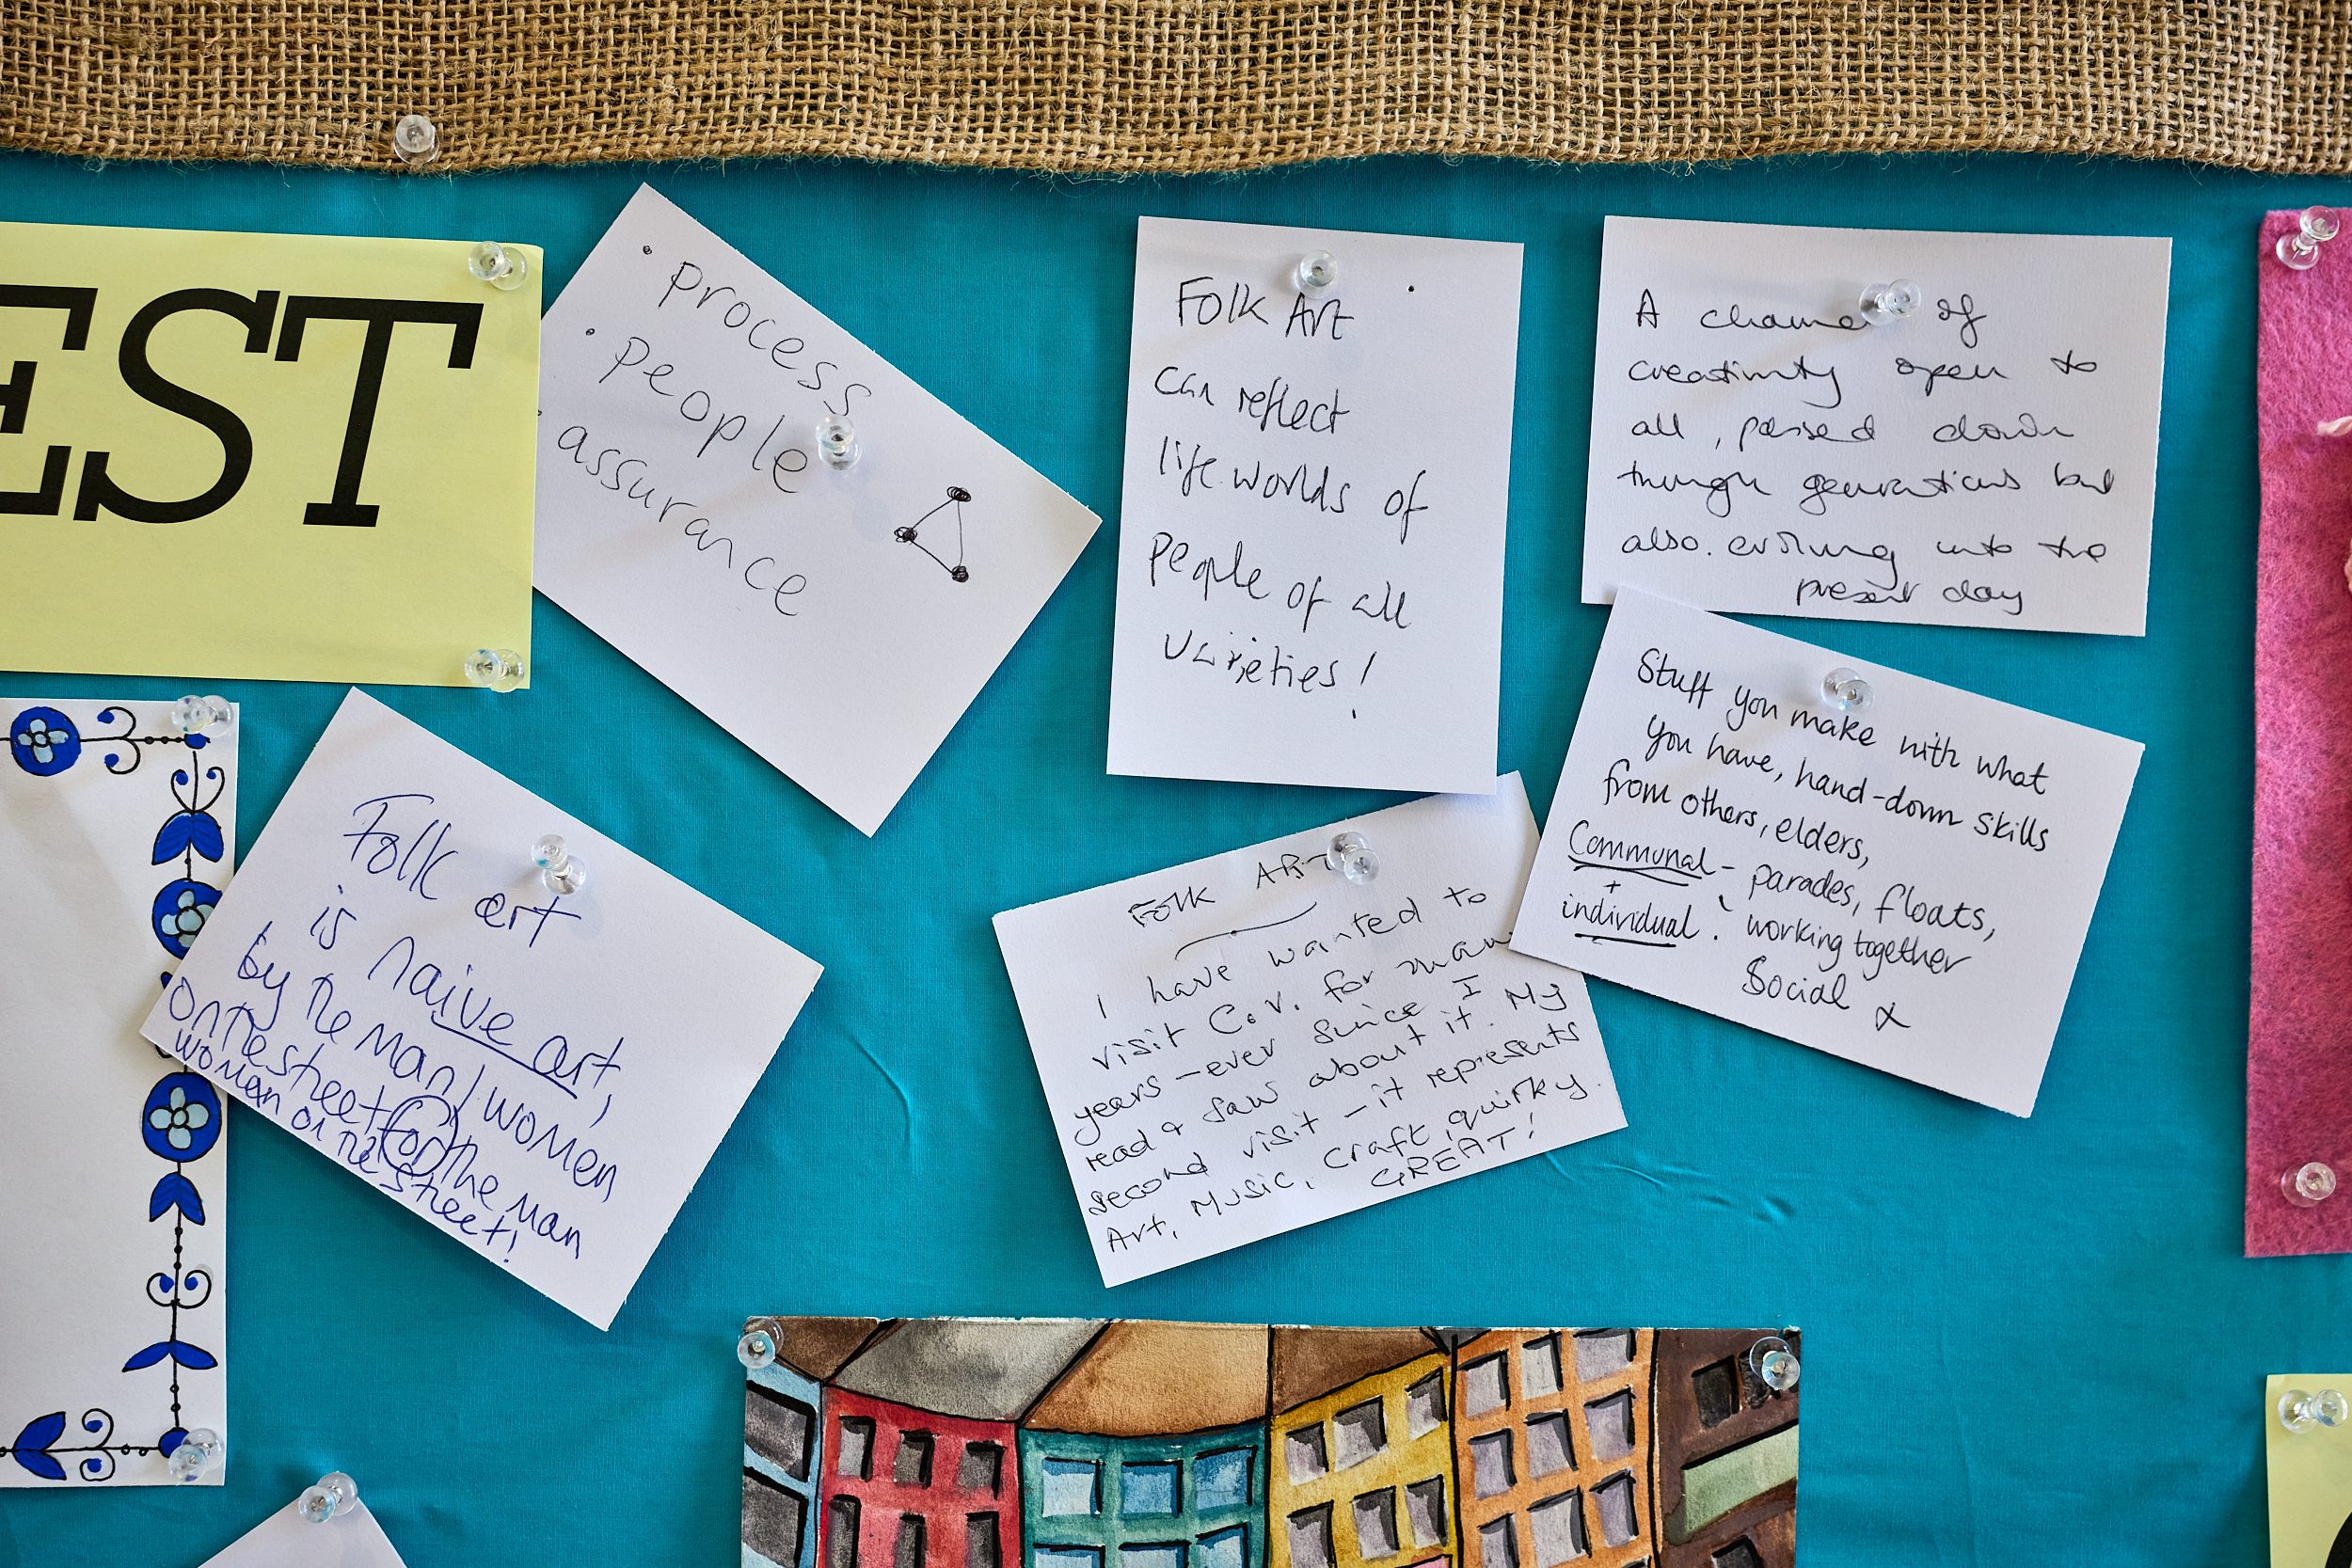 EST
· process
· people
· assurance
Folk Art
can reflect
life worlds of
people of all
varieties!
A channel of
creativity open to
all, passed down
through generations but
also evolving into the
present day
Stuff you make with what
you have, hand-down skills
from others, elders,
Communal - parades, floats,
+
individual : working together
Social
Folk art
is naive art,
by the man/women
on the street for the man
woman on the street!
FOLK ART
I have wanted to
visit C.V. for many
years - ever since I
read & saw about it. My
second visit - it represents
Art, Music, Craft, quirky.
GREAT!